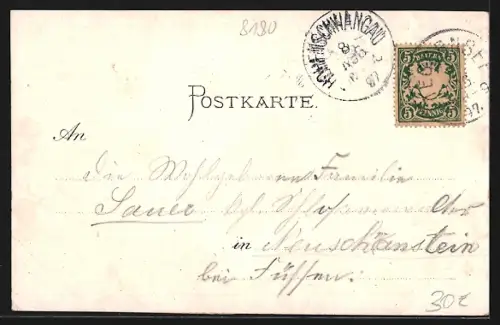 8180
HOHENSCHWANGAU
BAYERN
5 5
PFENNIG
5 5
POSTKARTE.
An
die Wohlgeborene Familie
Sauer kgl. Schlossverwalter
in Neuschwanstein
bei Füssen.
30€